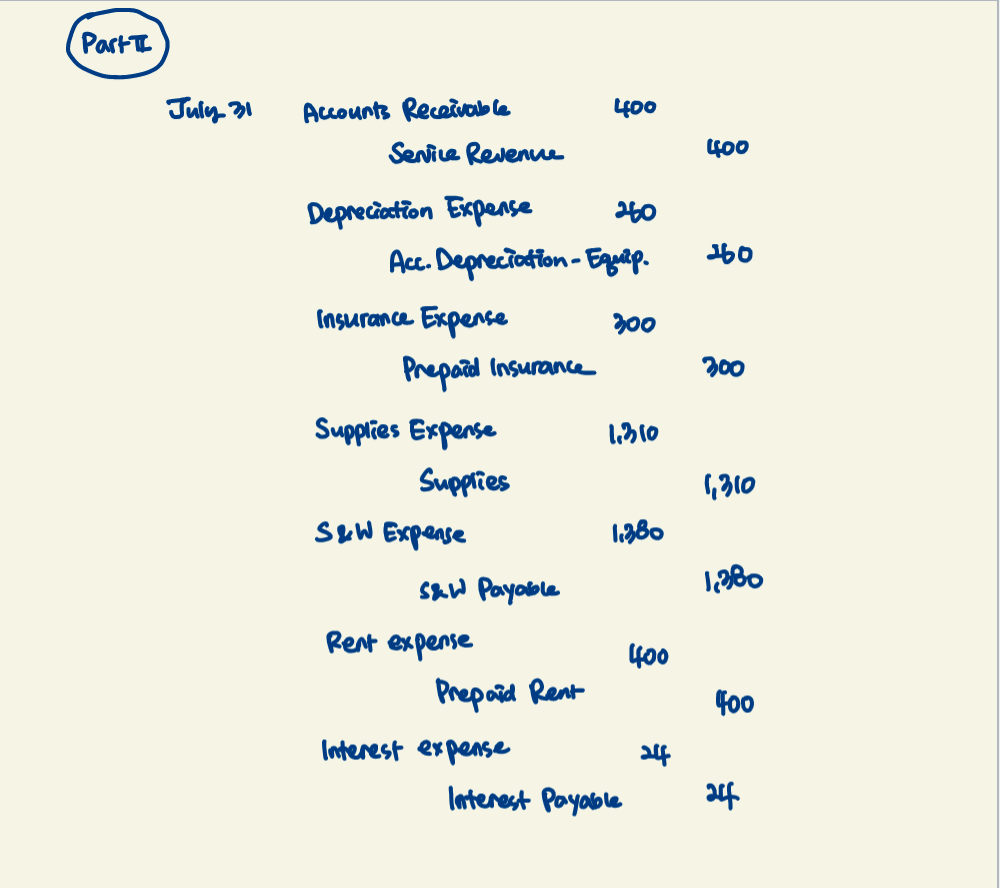 Part II
July 31 Accounts Receivable 400
Service Revenue 400
Depreciation Expense 260
Acc. Depreciation - Equip. 260
Insurance Expense 300
Prepaid Insurance 300
Supplies Expense 1,310
Supplies 1,310
S&W Expense 1,380
S&W Payable 1,380
Rent expense 400
Prepaid Rent 400
Interest expense 24
Interest Payable 24